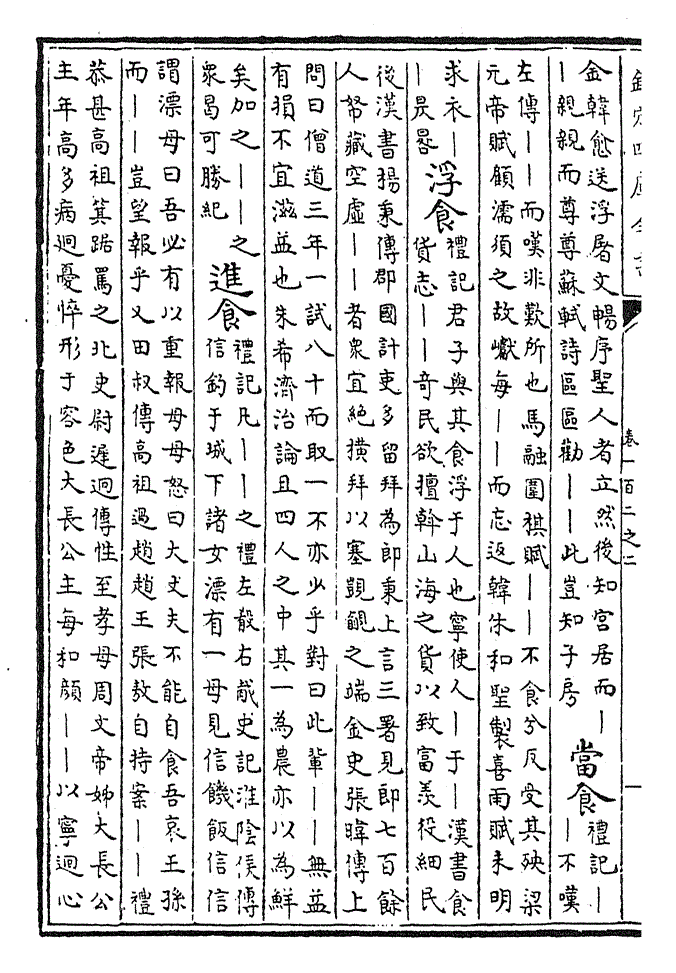 欽定四庫全書
卷一百二之二
金韓愈送浮屠文暢序聖人者立然後知宫居而丨
丨親親而尊尊蘇軾詩區區勸丨丨此豈知子房
當食
禮記丨
丨不嘆
左傳丨丨而嘆非歎所也馬融圍棋賦丨丨不食兮反受其殃梁
元帝賦顧濡須之故巘每丨丨而忘返韓朱和聖製喜雨賦未明
求衣丨
丨晨晷
浮食
禮記君子與其食浮于人也寧使人丨于丨漢書食
貨志丨丨竒民欲擅斡山海之貨以致富羡役細民
後漢書楊秉傳郡國計吏多留拜為郎秉上言三署見郎七百餘
人帑藏空虚丨丨者衆宜絶横拜以塞覬覦之端金史張暐傳上
問曰僧道三年一試八十而取一不亦少乎對曰此輩丨丨無益
有損不宜滋益也朱希濟治論且四人之中其一為農亦以為鮮
矣加之丨丨之
衆曷可勝紀
進食
禮記凡丨丨之禮左殽右胾史記淮陰侯傳
信釣于城下諸女漂有一母見信饑飯信信
謂漂母曰吾必有以重報母母怒曰大丈夫不能自食吾哀王孫
而丨丨豈望報乎又田叔傳高祖過趙趙王張敖自持案丨丨禮
恭甚高祖箕踞罵之北史尉遲迥傳性至孝母周文帝姊大長公
主年高多病迥憂悴形于容色大長公主每和顔丨丨以寧迥心